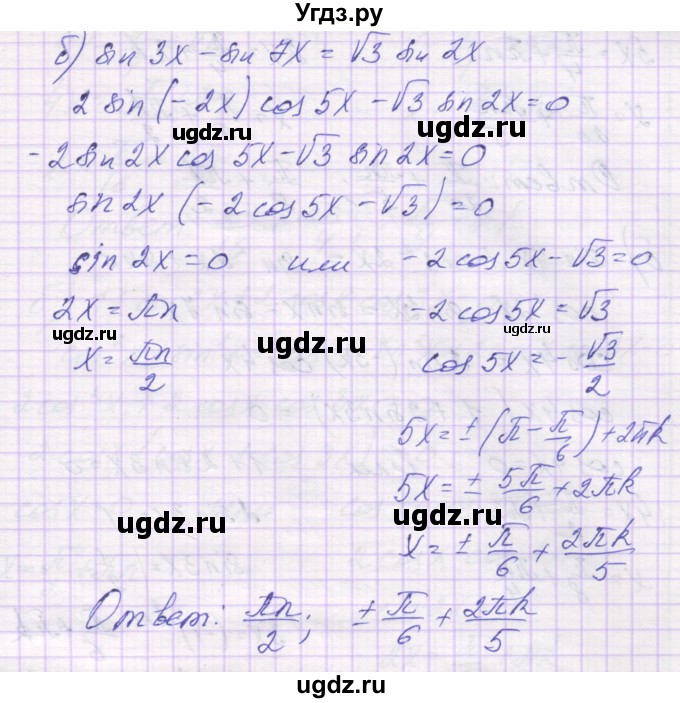 Угдз.ру
б) sin 3x - sin 7x = √3 sin 2x
2 sin (-2x) cos 5x - √3 sin 2x = 0
ugdz.ru ugdz.ru
-2 sin 2x cos 5x - √3 sin 2x = 0
sin 2x (-2 cos 5x - √3) = 0
ugdz.ru
sin 2x = 0 или -2 cos 5x - √3 = 0
2x = πn -2 cos 5x = √3
ugdz.ru ugdz.ru ugdz.ru
x = πn/2 cos 5x = - √3/2
5x = ± (π - π/6) + 2πk
5x = ± 5π/6 + 2πk
ugdz.ru ugdz.ru
x = ± π/6 + 2πk/5
Ответ: πn/2; ± π/6 + 2πk/5
ugdz.ru
ugdz.ru